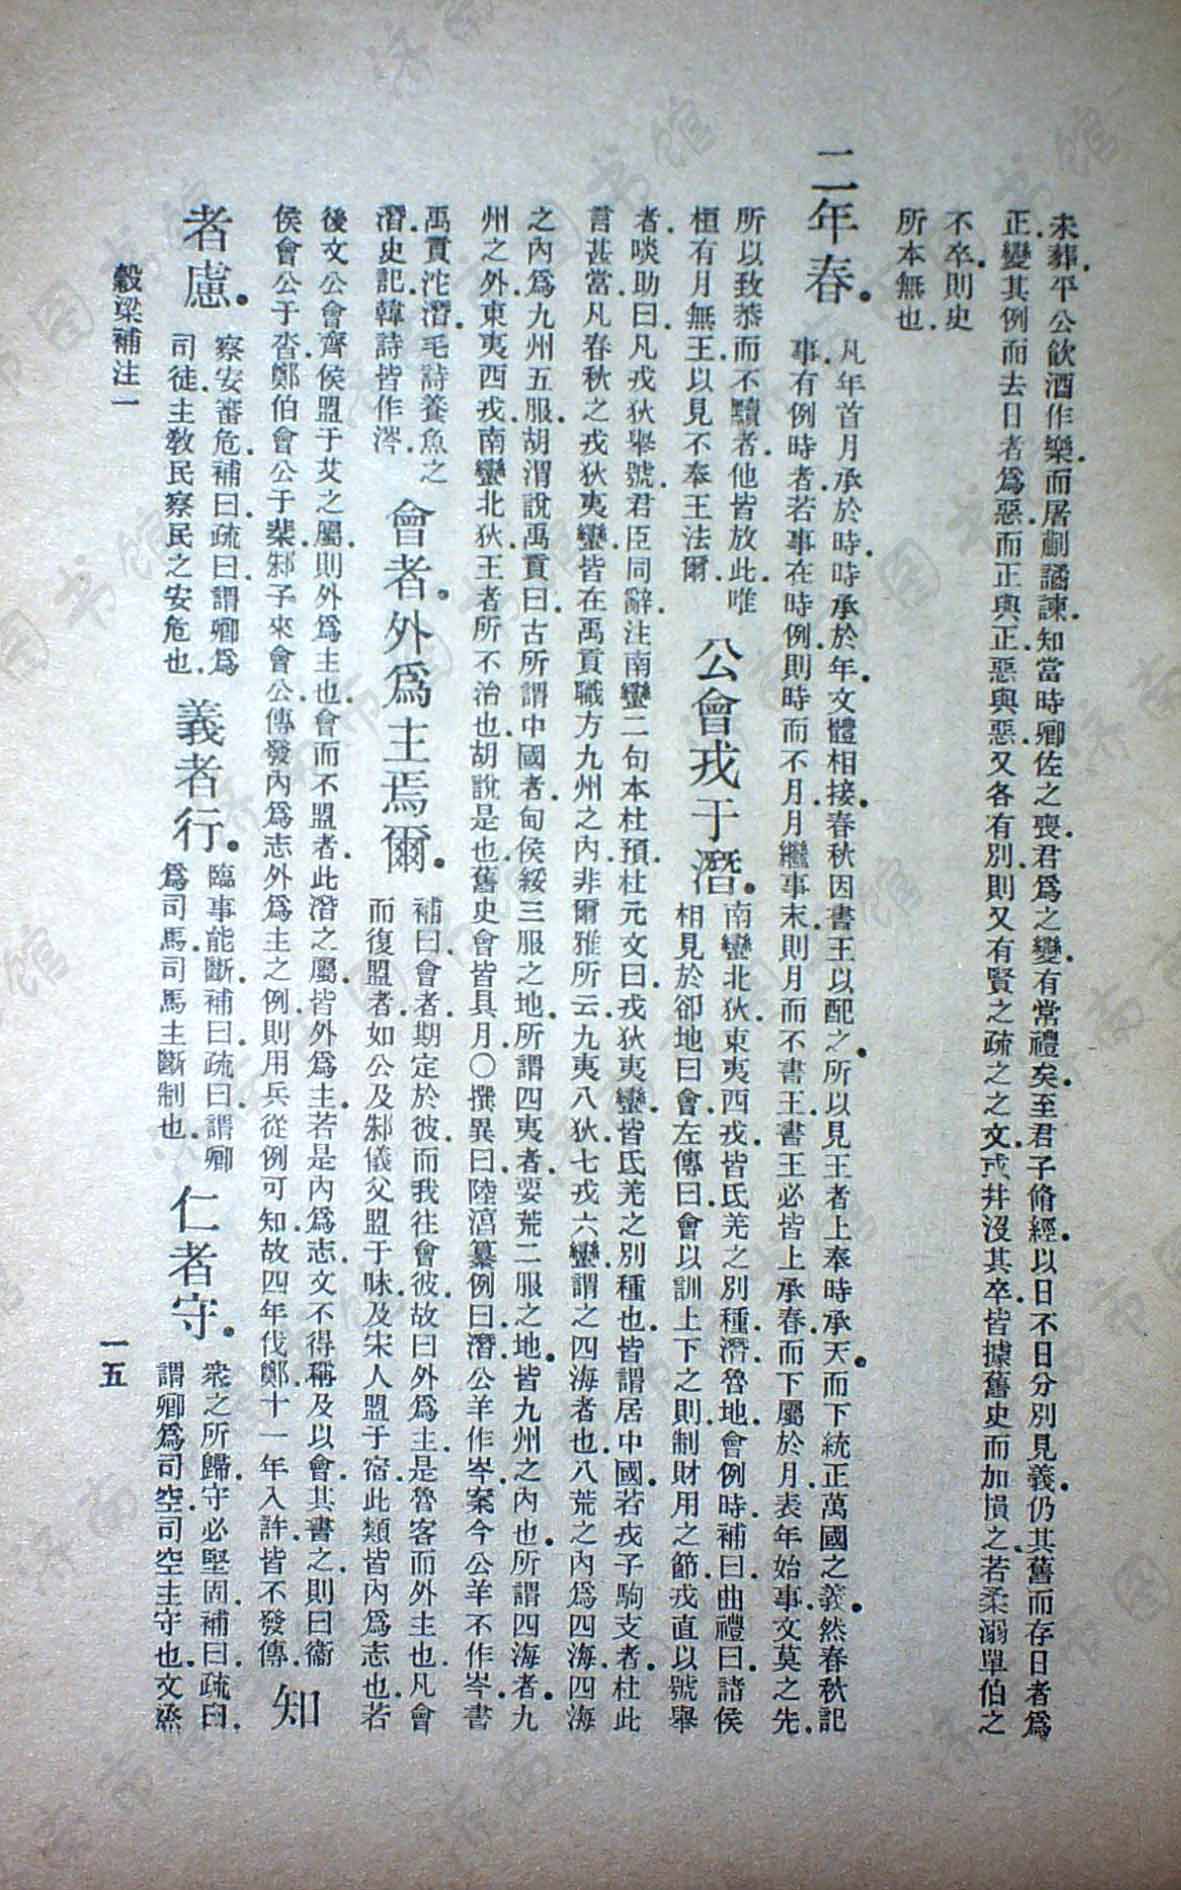 未葬平公飲酒作樂而屠蒯譎諫知當時卿佐之喪君爲之變有常禮矣至君子脩經以日不日分別見義仍其舊而存日者爲
正變其例而去日者爲惡而正與正惡與惡又各有別則又有賢之疏之之文或并沒其卒皆據舊史而加損之若柔溺單伯之
不卒則史
所本無也
二年春
凡年首月承於時時承於年文體相接春秋因書王以配之所以見王者上奉時承天而下統正萬國之義然春秋記
事有例時者若事在時例則時而不月月繼事末則月而不書王書王必皆上承春而下屬於月表年始事文莫之先
所以致恭而不黷者他皆放此唯
桓有月無王以見不奉王法爾
公會戎于潛
南蠻北狄東夷西戎皆氐羌之別種潛魯地會例時補曰曲禮曰諸侯
相見於卻地曰會左傳曰會以訓上下之則制財用之節戎直以號舉
者啖助曰凡戎狄舉號君臣同辭注南蠻二句本杜預杜元文曰戎狄夷蠻皆氐羌之別種也皆謂居中國若戎子駒支者杜此
言甚當凡春秋之戎狄夷蠻皆在禹貢職方九州之內非爾雅所云九夷八狄七戎六蠻謂之四海者也八荒之內爲四海四海
之內爲九州五服胡渭說禹貢曰古所謂中國者甸侯綏三服之地所謂四夷者要荒二服之地皆九州之內也所謂四海者九
州之外東夷西戎南蠻北狄王者所不治也胡說是也舊史會皆具月○撰異曰陸湻纂例曰潛公羊作岑案今公羊不作岑書
禹貢沱潛毛詩養魚之
潛史記韓詩皆作涔
會者外爲主焉爾
補曰會者期定於彼而我往會彼故曰外爲主是魯客而外主也凡會
而復盟者如公及邾儀父盟于昧及宋人盟于宿此類皆內爲志也若
後文公會齊侯盟于艾之屬則外爲主也會而不盟者此潛之屬皆外爲主若是內爲志文不得稱及以會其書之則曰衞
侯會公于沓鄭伯會公于棐邾子來會公傳發內爲志外爲主之例則用兵從例可知故四年伐鄭十一年入許皆不發傳
知
者慮
察安審危補曰疏曰謂卿爲
司徒主敎民察民之安危也
義者行
臨事能斷補曰疏曰謂卿
爲司馬司馬主斷制也
仁者守
衆之所歸守必堅固補曰疏曰
謂卿爲司空司空主守也文烝
穀梁補注一
一五